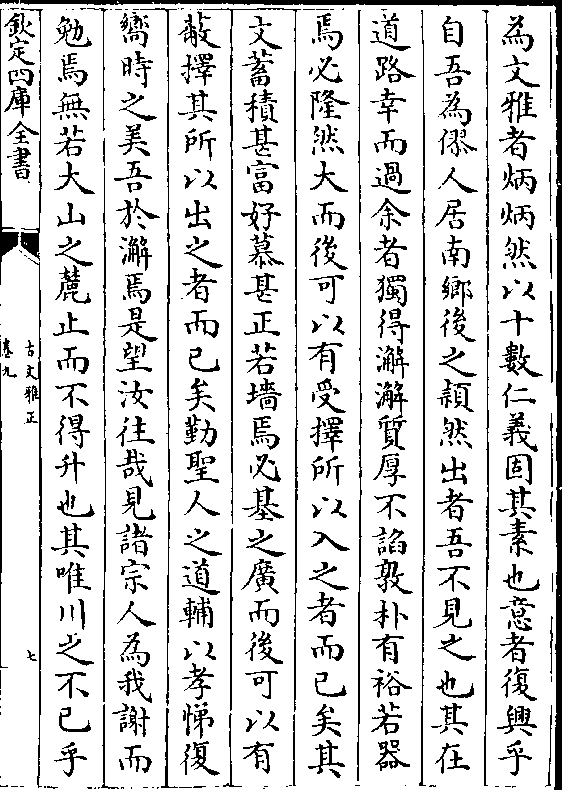 為文雅者炳炳然以十數仁義固其素也意者復興乎
自吾為僇人居南鄉後之穎然出者吾不見之也其在
道路幸而過余者獨得澥澥質厚不諂敦朴有裕若器
焉必隆然大而後可以有受擇所以入之者而已矣其
文蓄積甚富好慕甚正若墻焉必基之廣而後可以有
蔽擇其所以出之者而已矣勤聖人之道輔以孝悌復
嚮時之美吾於澥焉是望汝往哉見諸宗人為我謝而
勉焉無若太山之麓止而不得升也其唯川之不已乎
欽定四庫全書
古文雅正
卷九
七